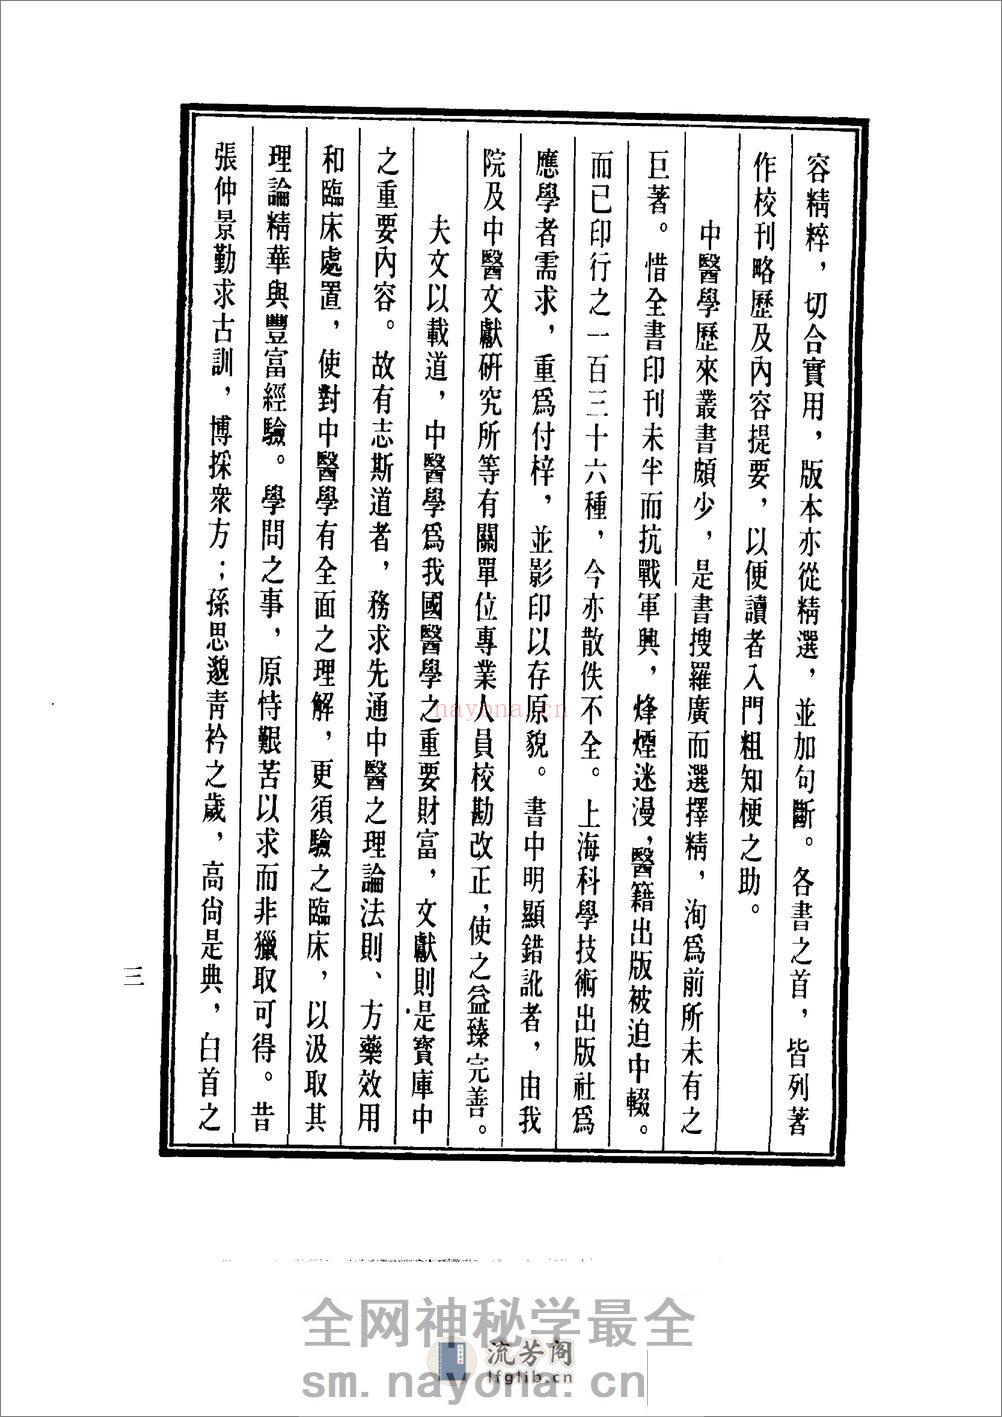 容精粹，切合實用，版本亦從精選，並加句斷。各書之首，皆列著
作校刊略歷及內容提要，以便讀者入門粗知梗之助。
中醫學歷來叢書頗少，是書搜羅廣而選擇精，洵爲前所未有之
巨著。惜全書印刊未半而抗戰軍興，烽煙迷漫，醫籍出版被迫中輟。
而已印行之一百三十六種，今亦散佚不全。上海科學技術出版社爲
應學者需求，重爲付梓，並影印以存原貌。書中明顯錯訛者，由我
院及中醫文獻研究所等有關單位專業人員校勘改正，使之益臻完善。
夫文以載道，中醫學爲我國醫學之重要財富，文獻則是寶庫中
之重要內容。故有志斯道者，務求先通中醫之理論法則、方藥效用
和臨床處置，使對中醫學有全面之理解，更須驗之臨床，以汲取其
理論精華與豐富經驗。學問之事，原恃艱苦以求而非獵取可得。昔
張仲景勤求古訓，博採衆方；孫思邈青衿之歲，高尚是典，白首之
三
nayona.cn
全网神秘学最全
流芳阁
lfglib.cn
sm.nayona.cn